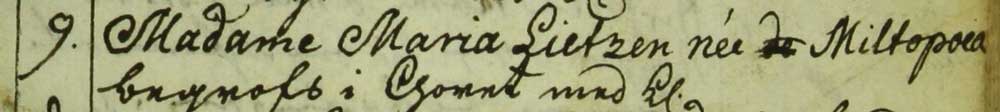 9. Madame Maria Lietzen née de Miltopoea
begrofs i Choret med Kl.